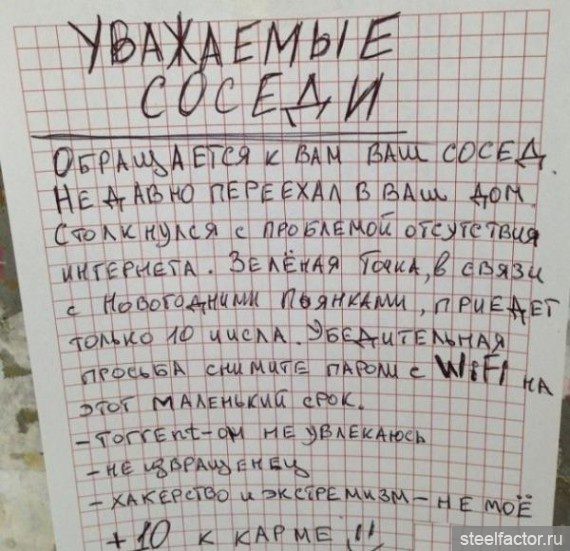 УВАЖАЕМЫЕ
СОСЕДИ
ОБРАЩАЕТСЯ К ВАМ ВАШ СОСЕД.
НЕДАВНО ПЕРЕЕХАЛ В ВАШ ДОМ.
СТОЛКНУЛСЯ С ПРОБЛЕМОЙ ОТСУТСТВИЯ
ИНТЕРНЕТА. ЗЕЛЁНАЯ ТОЧКА, В СВЯЗИ
С НОВОГОДНИМИ ПЬЯНКАМИ, ПРИЕДЕТ
ТОЛЬКО 10 ЧИСЛА. УБЕДИТЕЛЬНАЯ
ПРОСЬБА СНИМИТЕ ПАРОЛИ С WiFi НА
ЭТОТ МАЛЕНЬКИЙ СРОК.
- ТОГГЕНТ-ОМ НЕ УВЛЕКАЮСЬ
- НЕ ИЗВРАЩЕНЕЦ
- ХАКЕРСТВО И ЭКСТРЕМИЗМ - НЕ МОЁ
+10 К КАРМЕ !!
steelfactor.ru